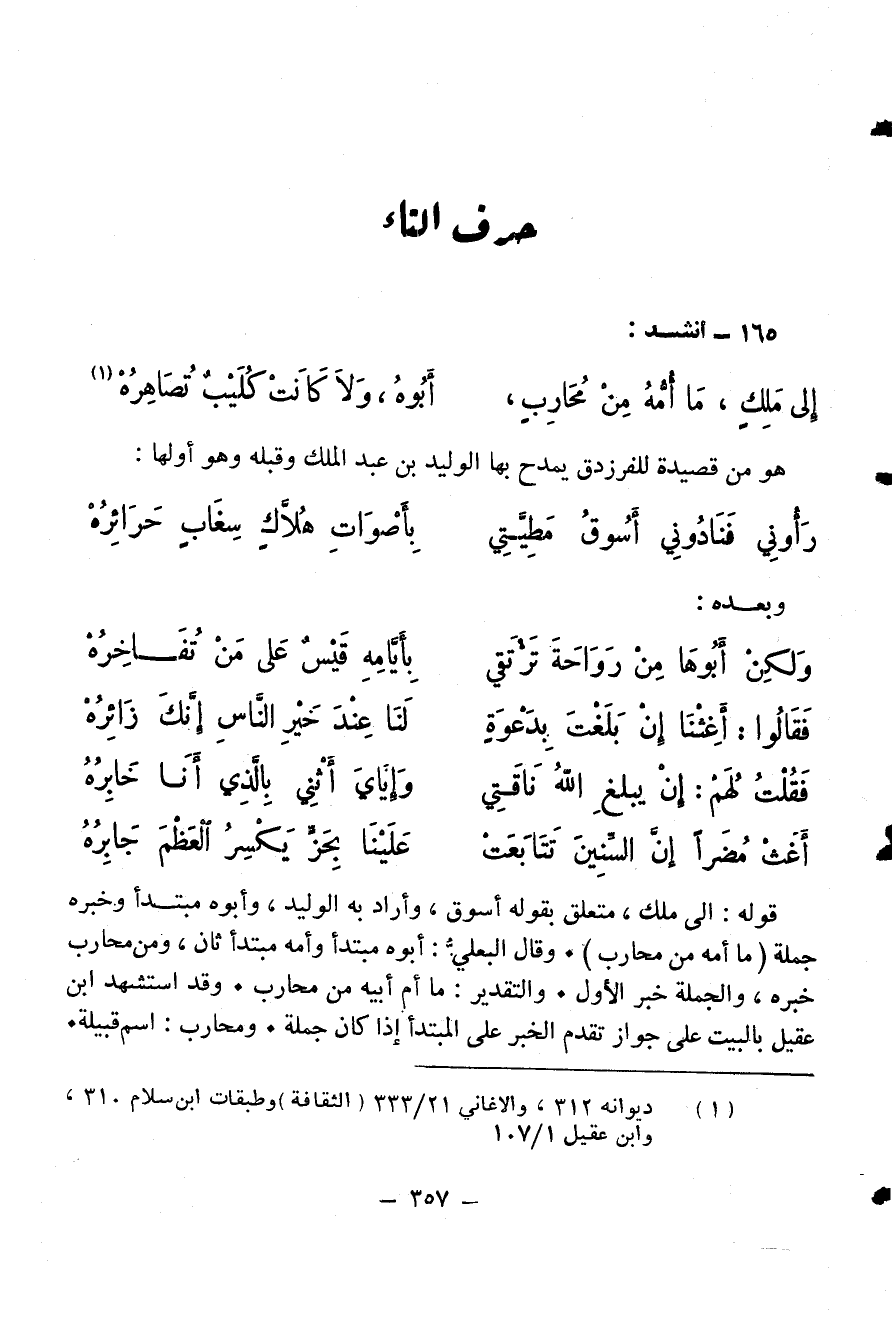 حرف التاء
١٦٥ ـ أنشد :
إلى مَلِكٍ ، مَا أُمُّهُ مِنْ مُحَارِبٍ ، أَبُوهُ ، وَلاَ كَانَتْ كُلَيْبٌ تُصَاهِرُهْ (١)
هو من قصيدة للفرزدق يمدح بها الوليد بن عبد الملك وقبله وهو أولها :
رَأُونِي فَنَادُونِي أَسُوقُ مَطِيَّتِي بِأَصْوَاتِ هُلاَّكٍ سِغَابٍ حَرَائِرُهْ
وبعده :
وَلكِنْ أَبُوهَا مِنْ رَوَاحَةَ تَرْتَقِي بِأَيَّامِهِ قَيْسٌ عَلى مَنْ تُفَاخِرُهْ
فَقَالُوا : أَغِثْنَا إِنْ بَلَغْتَ بِدَعْوَةٍ لَنَا عِنْدَ خَيْرِ النَّاسِ إِنَّكَ زَائِرُهْ
فَقُلْتُ لَهُمْ : إِنْ يبلغِ اللهُ نَاقَتِي وَإِيَايَ أُنْبِي بِالَّذِي أَنَا خَابِرُهْ
أَغَثْ مُضَراً إِنَّ السِّنِينَ تَتَابَعَتْ عَلَيْنَا بِحَزٍّ يَكْسِرُ اَلعَظْمَ جَابِرُهُ
قوله : الى ملك ، متعلق بقوله أسوق ، وأراد به الوليد ، وأبوه مبتدأ وخبره
جملة ( ما أمه من محارب ) ٠ وقال البعليّ : أبوه مبتدأ وأمه مبتدأ ثان ، ومن محارب
خبره ، والجملة خبر الأول ٠ والتقدير : ما أم أبيه من محارب ٠ وقد استشهد ابن
عقيل بالبيت على جواز تقدم الخبر على المبتدأ إذا كان جملة ٠ ومحارب : اسم قبيلة٠
( ١ ) ديوانه ٣١٢ ، والاغاني ٣٣٣/٢١ ( الثقافة ) وطبقات ابن سلام ٣١٠ ،
وابن عقيل ١٠٧/١
ـ ٣٥٧ ـ